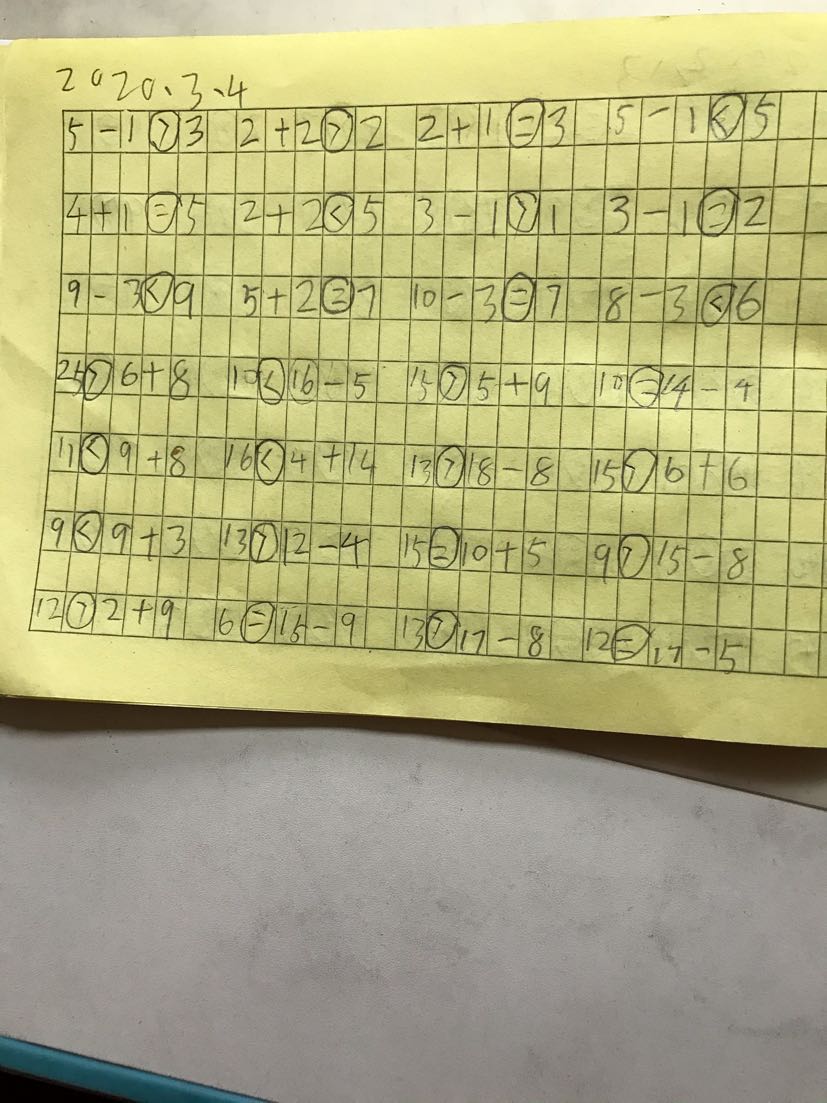 2020、3、4
5-1>3 2+2>2 2+1=3 5-1<5
4+1=5 2+2<5 3-1>1 3-1=2
9-3<9 5+2=7 10-3=7 8-3<6
25>6+8 10<16-5 15>5+9 10=14-4
11<9+8 16<4+14 13>18-8 15>6+6
9<9+3 13>12-4 15=10+5 9>15-8
12>2+9 6=15-9 13>17-8 12=17-5